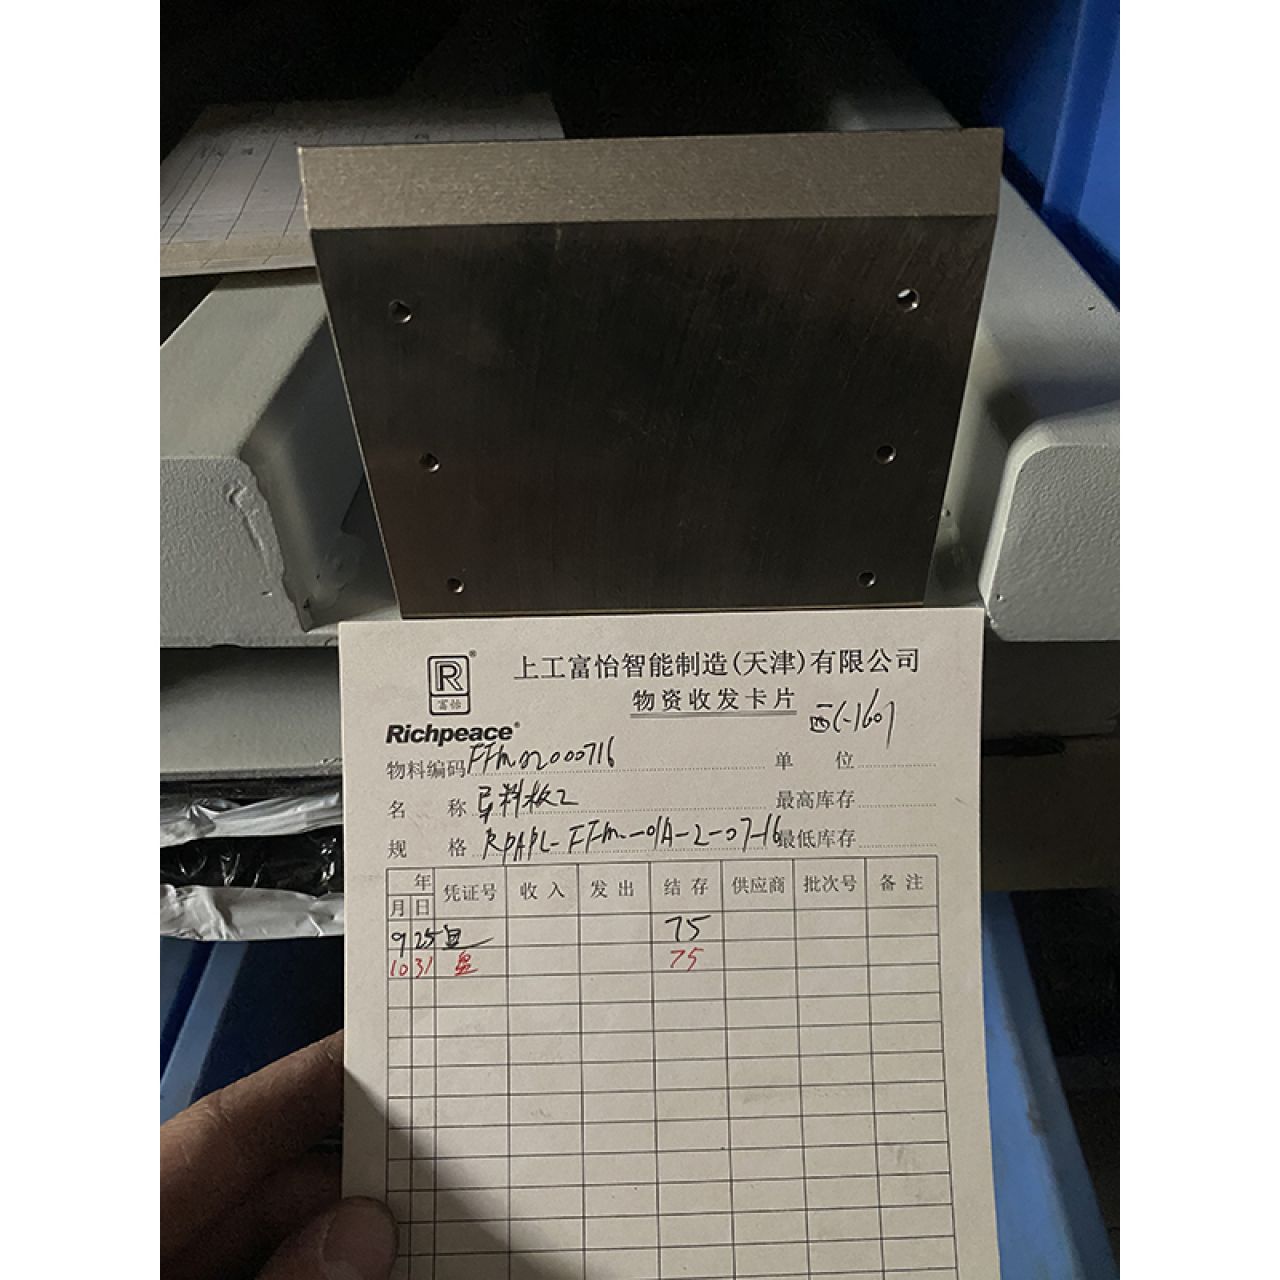 R®
富怡
Richpeace®
上工富怡智能制造(天津)有限公司
物资收发卡片
西(-160)
物料编码 FFM02000716 单 位
名 称 导料板2 最高库存
规 格 RPAPL-FFM-01A-2-07-16 最低库存
年 月 日 凭证号 收 入 发 出 结 存 供应商 批次号 备 注
9 25 盘 75
10 31 盘 75